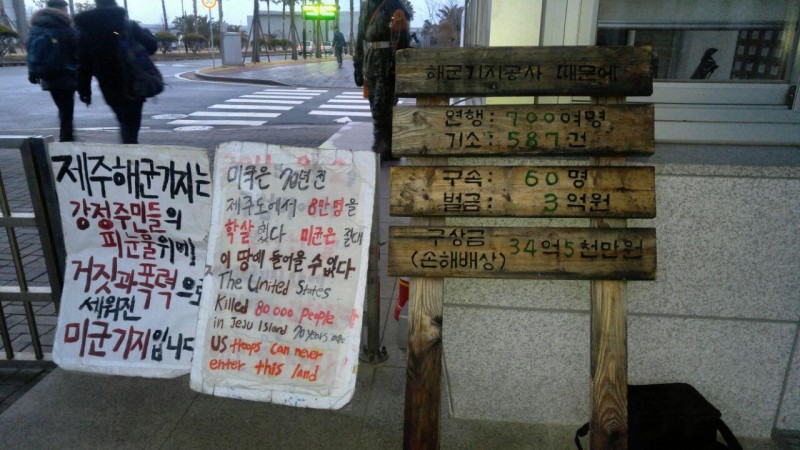 제주해군기지는
강정주민들의
피눈물위에!
거짓과폭력으로
세워진
미군기지입니다
미국은 70년전
제주도에서 8만명을
학살했다 미군은 절대
이 땅에 들어올 수 없다
The United States
Killed 80000 people
in Jeju Island 70 years ago
US troops can never
enter this land
해군기지공사 때문에
연행: 700여명
기소: 587건
구속: 60명
벌금: 3억원
구상금 34억5천만원
(손해배상)